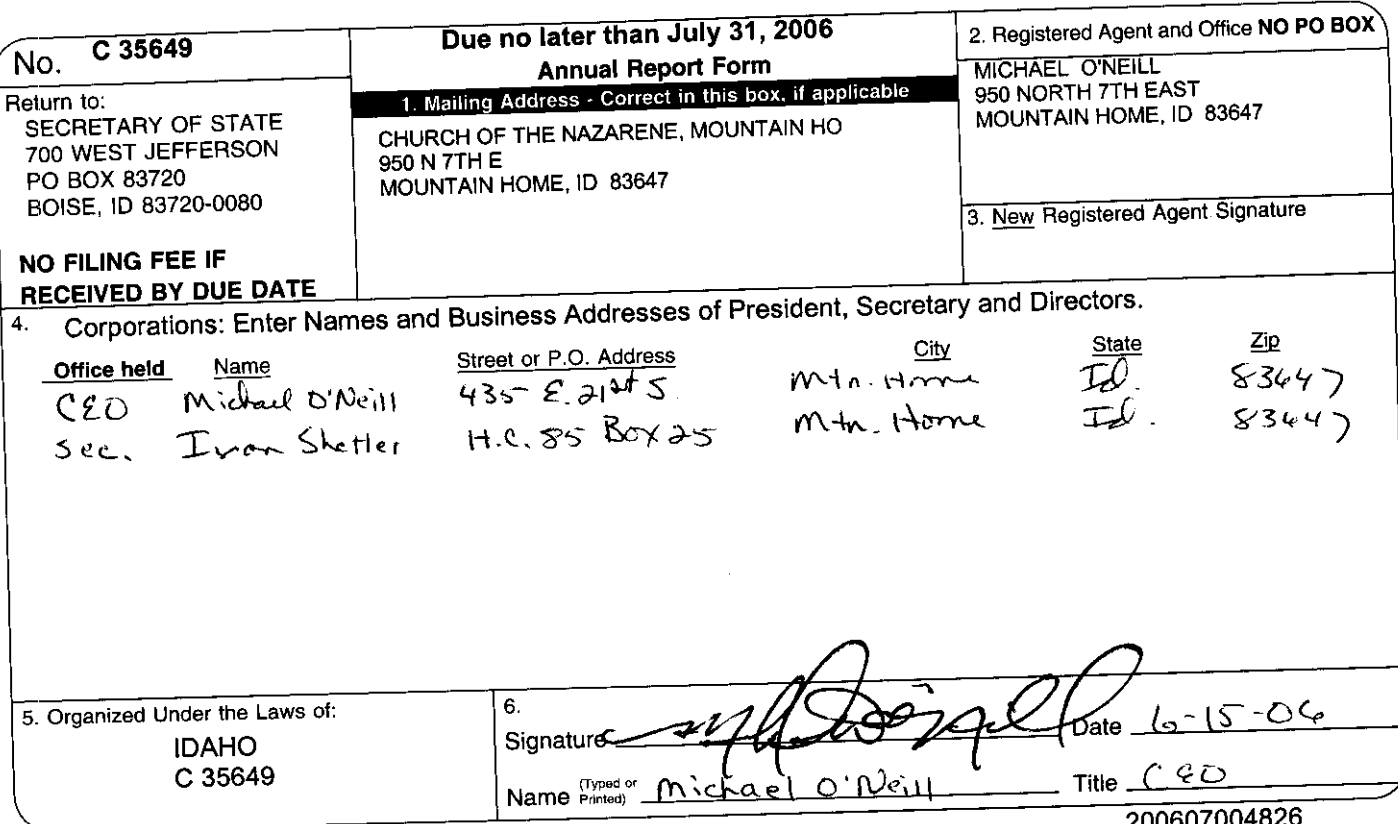 No. C 35649
Return to:
SECRETARY OF STATE
700 WEST JEFFERSON
PO BOX 83720
BOISE, ID 83720-0080
NO FILING FEE IF
RECEIVED BY DUE DATE
Due no later than July 31, 2006
Annual Report Form
1. Mailing Address - Correct in this box, if applicable
CHURCH OF THE NAZARENE, MOUNTAIN HO
950 N 7TH E
MOUNTAIN HOME, ID 83647
2. Registered Agent and Office NO PO BOX
MICHAEL O'NEILL
950 NORTH 7TH EAST
MOUNTAIN HOME, ID 83647
3. New Registered Agent Signature
4. Corporations: Enter Names and Business Addresses of President, Secretary and Directors.
Office held Name Street or P.O. Address City State Zip
CEO Michael O'Neill 435 E. 21st S Mtn. Home Id. 83647
Sec. Ivan Shetler H.C. 85 Box 25 Mtn. Home Id. 83647
5. Organized Under the Laws of:
IDAHO
C 35649
6.
Signature Date 6-15-06
Name (Typed or Printed) Michael O'Neill Title CEO
200607004826